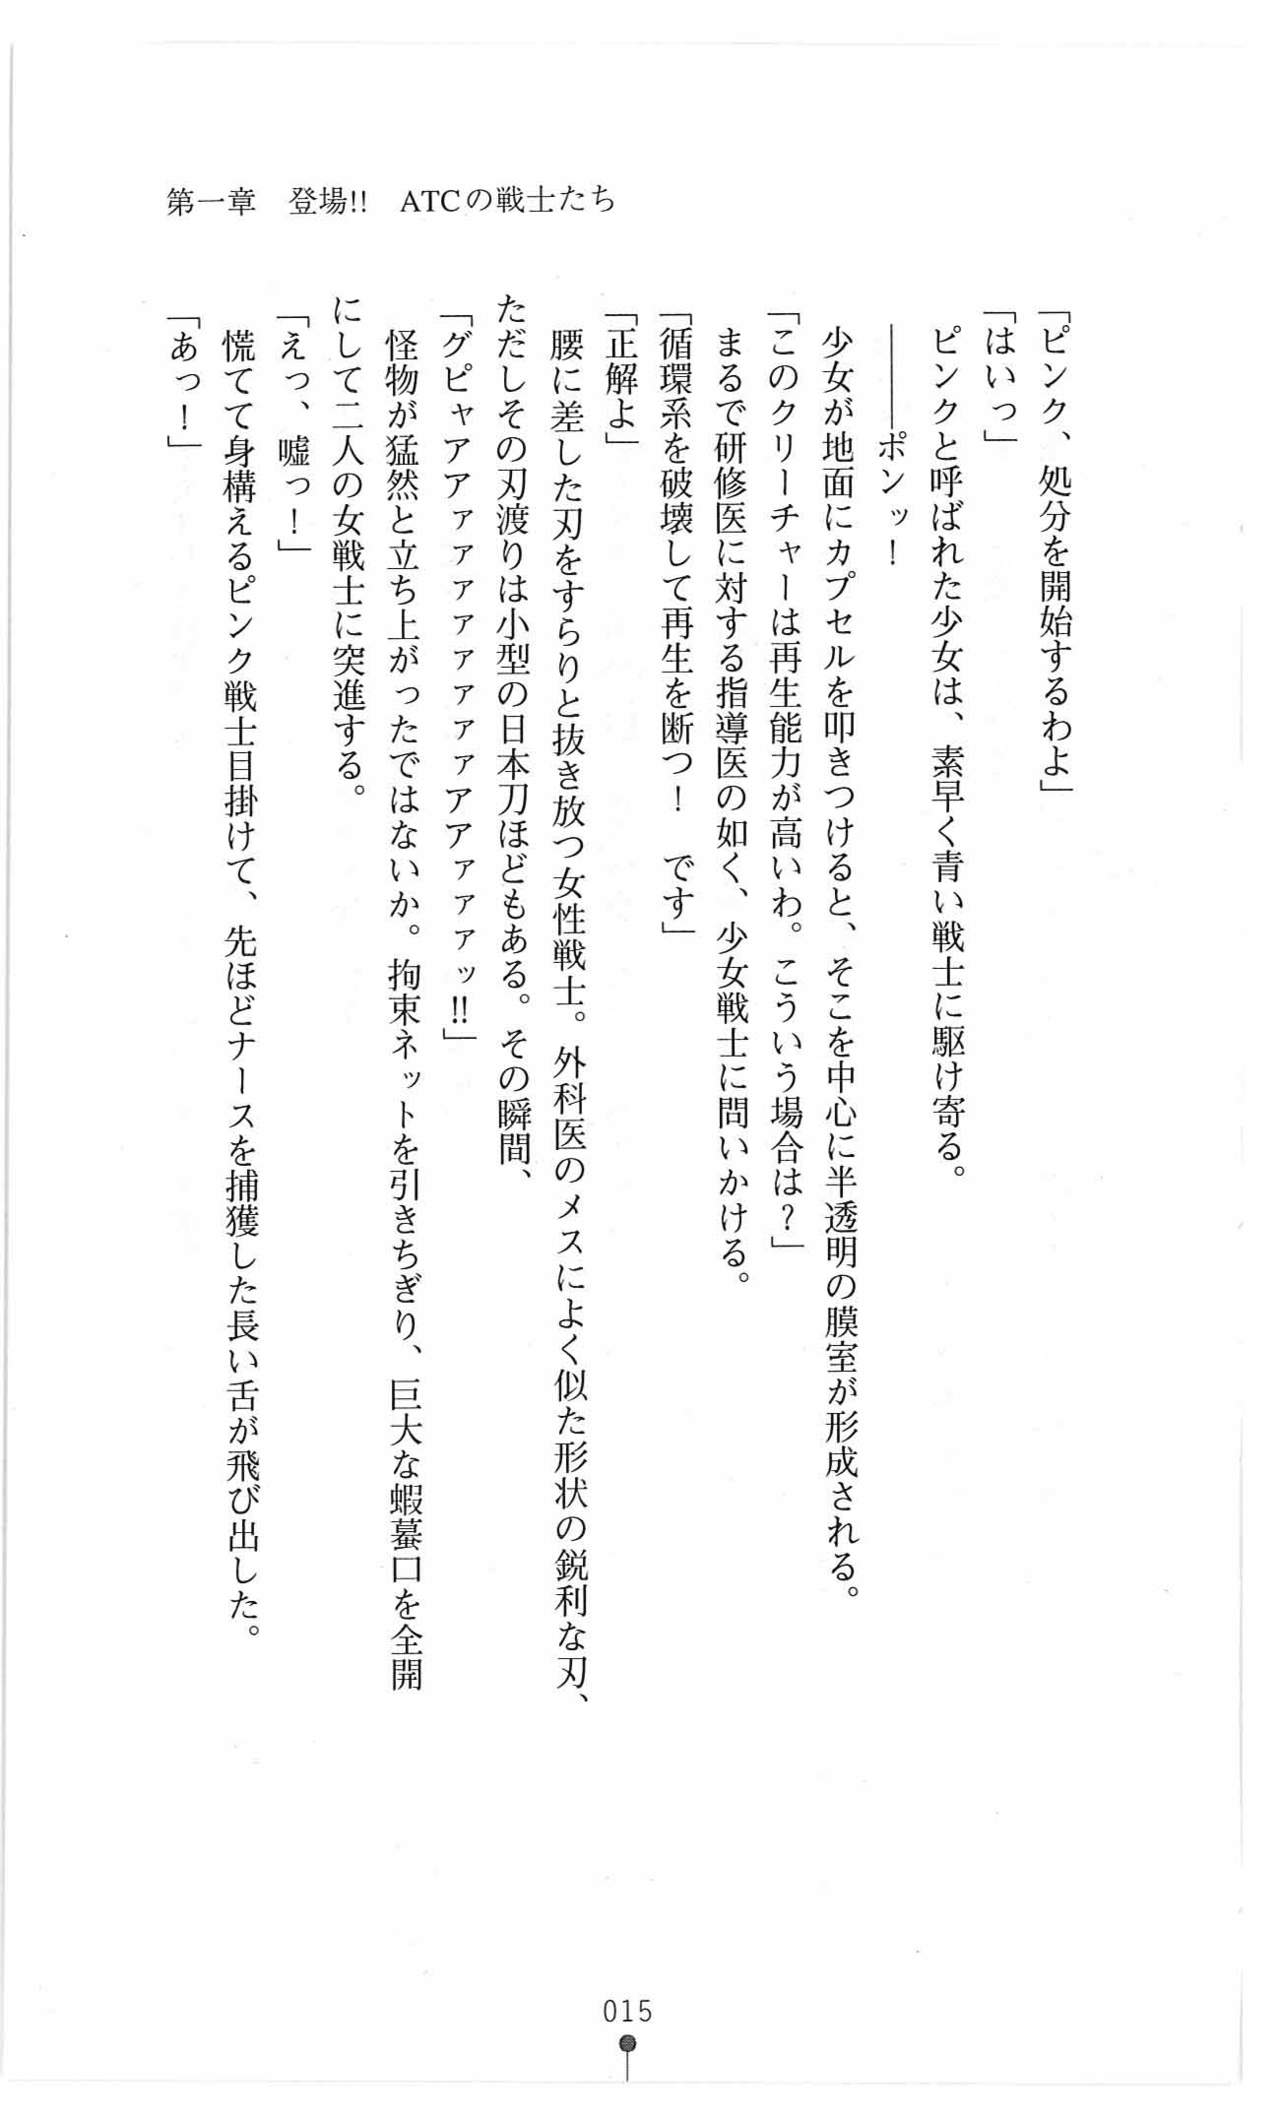 第一章　登場!!　ATCの戦士たち
「ピンク、処分を開始するわよ」
「はいっ」
　ピンクと呼ばれた少女は、素早く青い戦士に駆け寄る。
　―――ポンッ！
　少女が地面にカプセルを叩きつけると、そこを中心に半透明の膜室が形成される。
「このクリーチャーは再生能力が高いわ。こういう場合は？」
　まるで研修医に対する指導医の如く、少女戦士に問いかける。
「循環系を破壊して再生を断つ！　です」
「正解よ」
　腰に差した刃をすらりと抜き放つ女性戦士。外科医のメスによく似た形状の鋭利な刃、
ただしその刃渡りは小型の日本刀ほどもある。その瞬間、
「グピャアアァァァァァァァァアアァァァッ!!」
　怪物が猛然と立ち上がったではないか。拘束ネットを引きちぎり、巨大な蝦蟇口を全開
にして二人の女戦士に突進する。
「えっ、嘘っ！」
　慌てて身構えるピンク戦士目掛けて、先ほどナースを捕獲した長い舌が飛び出した。
「あっ！」
015